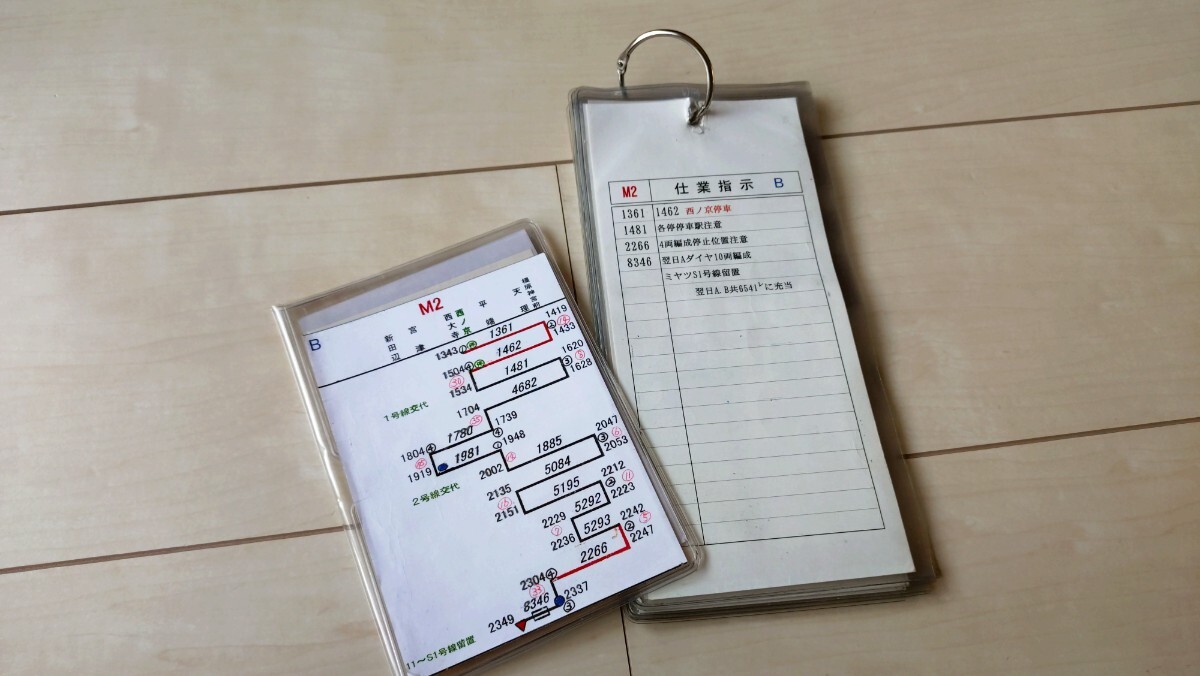 M2
B
新田辺 宮津 西大寺 西ノ京 平端 天理 橿原神宮前
1419
1361
1343
1433
1462
1504 ④
1620
1481 ③
30
1534
1628
4682
1号線交代
1704
35
1739
1780 ④
1804 ④
1948
1981
1919
2047
1885 ③
2002
2053
5084
2号線交代
2135
2212
5195
16
2151
5292
2223
2229
2242
5293 ②
2236
2247
2266
2304 ④
2337
8346 ③
2349
11～S1号線留置
M2 仕業指示 B
1361 1462 西ノ京停車
1481 各停停車駅注意
2266 4両編成停止位置注意
8346 翌日Aダイヤ10両編成
ミヤツS1号線留置
翌日A.B共6541レに充当